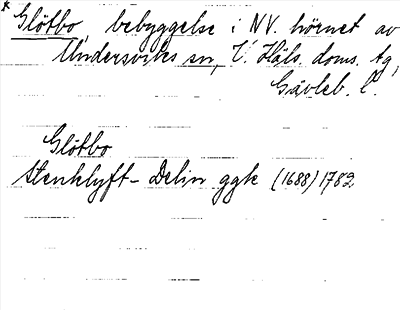 * Glötbo, bebyggelse i NV. hörnet av
Undersviks sn, V. Häls. doms. tg,
Gävleb. l.
Glötbo
Stenklyft - Delin ggk (1688) 1782